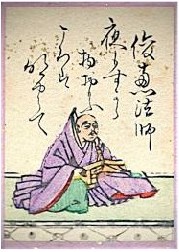 俊恵法師
夜もすから
物おもふ
ころは
明やらて